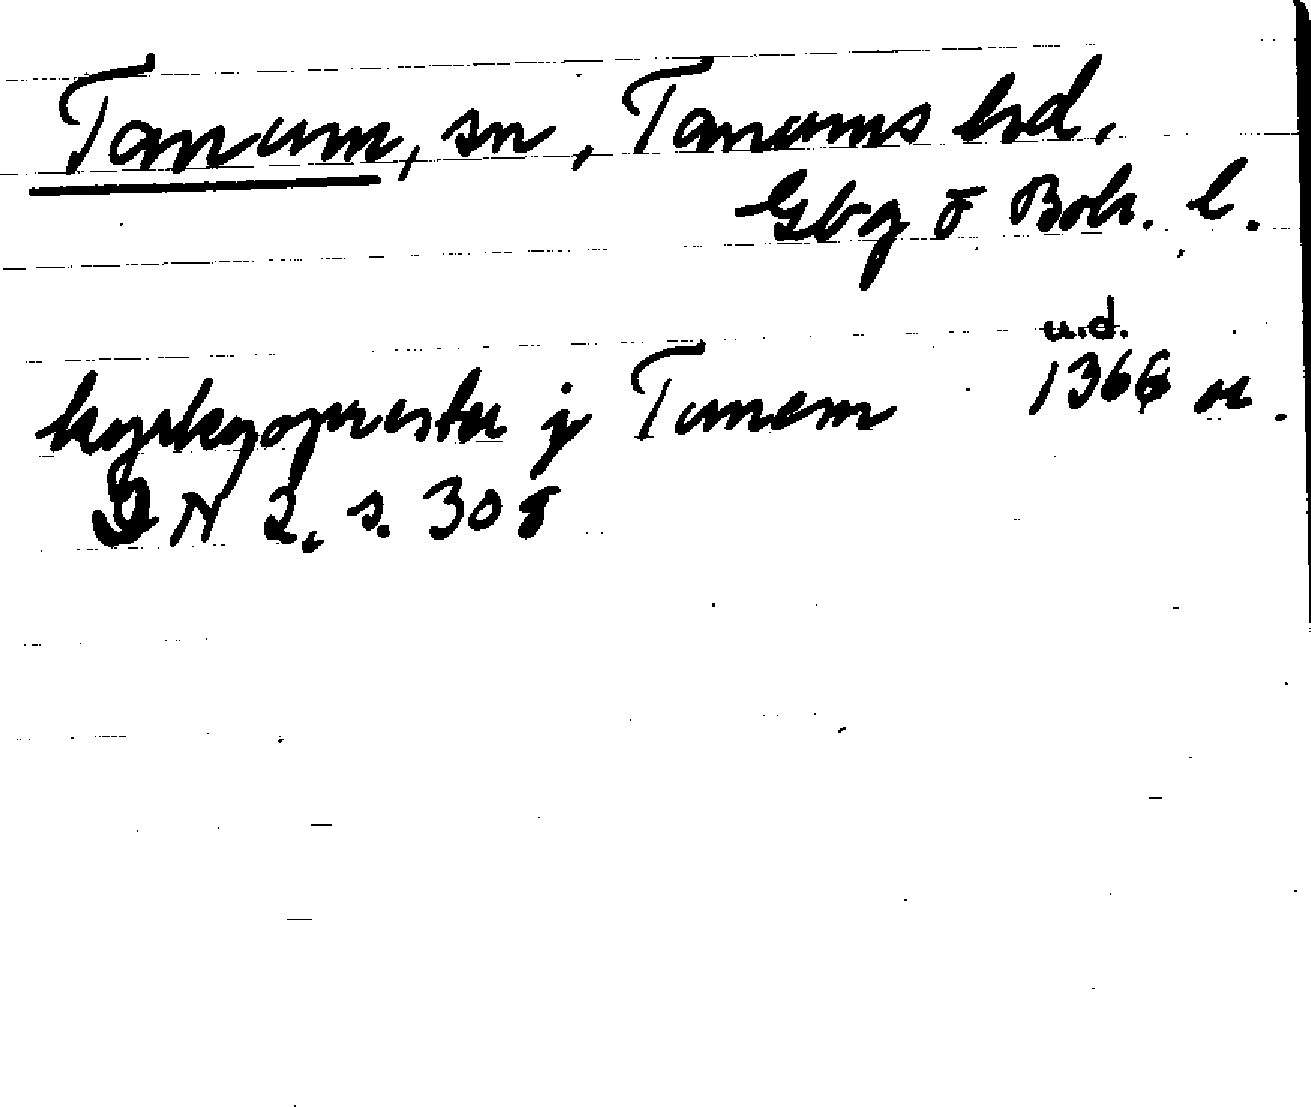 Tanum, sn, Tanums hd,
Gbg o Boh. l.
u.d.
kyrkyoprester j Tunem 1366 or.
DN 2, s. 308